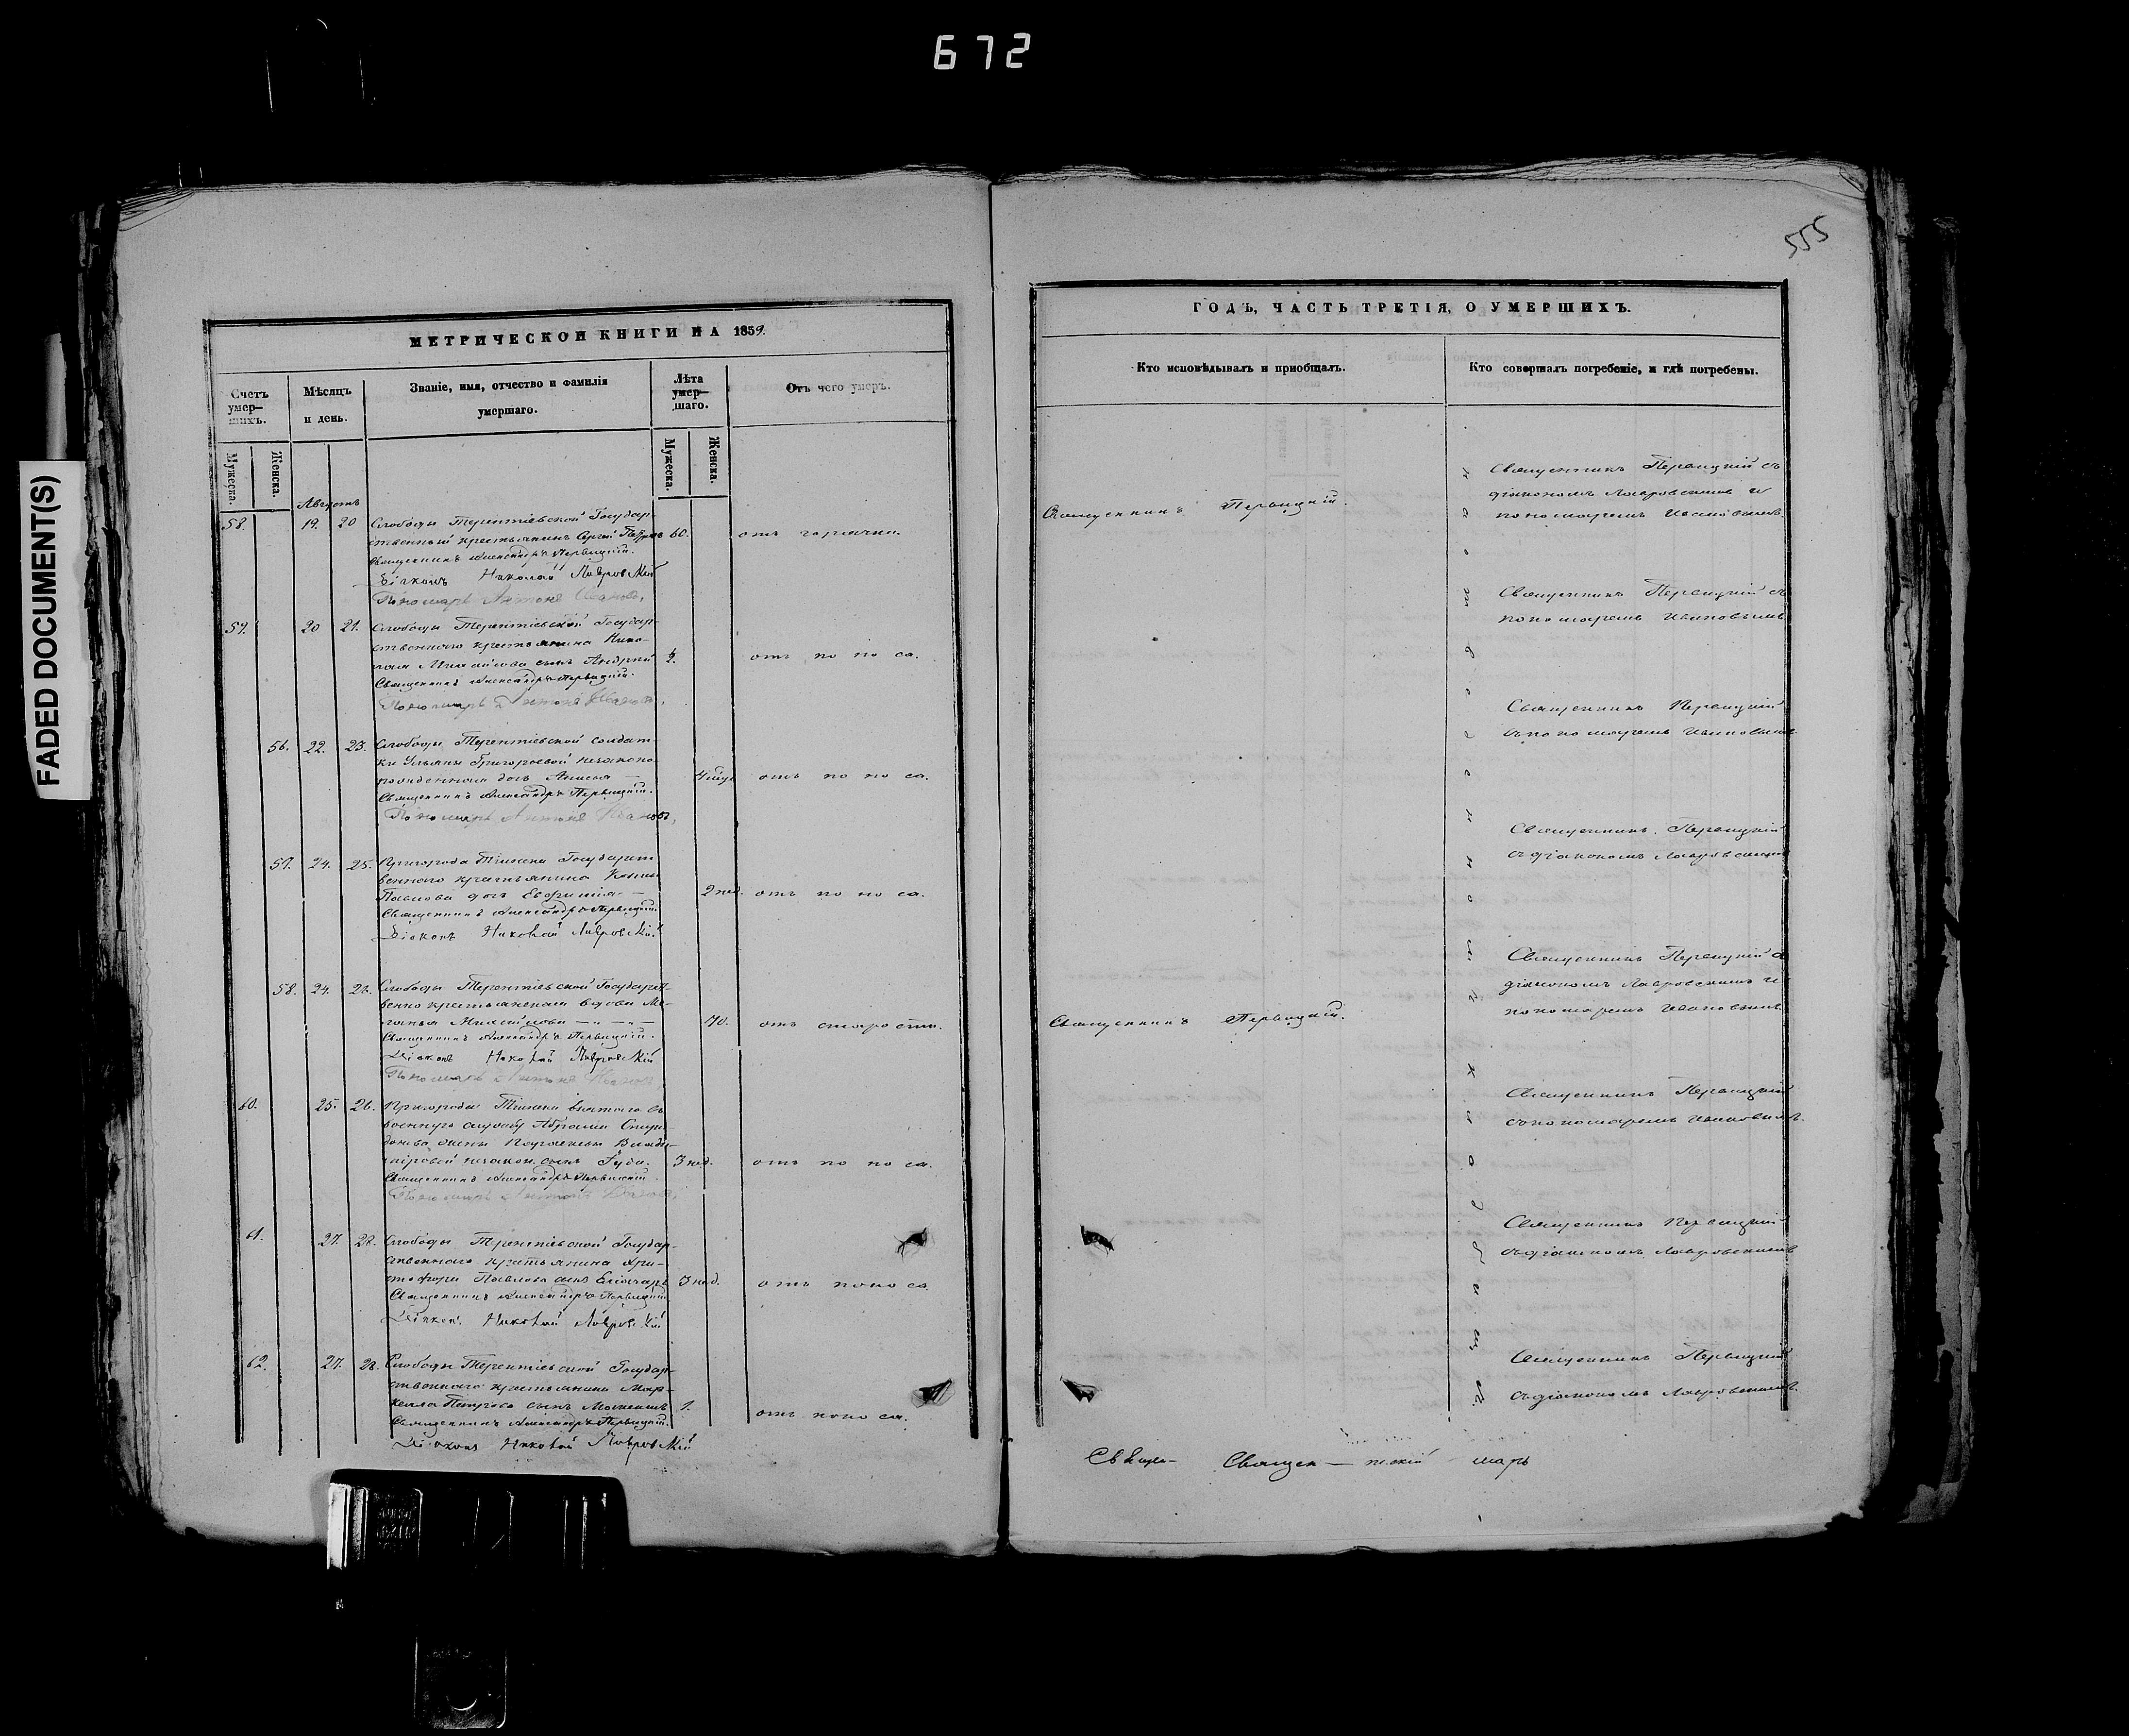 672
FADED DOCUMENT(S)
555
МЕТРИЧЕСКОЙ КНИГИ НА 1859.
Счетъ умер-шихъ.
Мѣсяцъ и день.
Званіе, имя, отчество и фамилія умершаго.
Лѣта умер-шаго.
Отъ чего умеръ.
Мужеска.
Женска.
Мужеска.
Женска.
Августъ
58. 19. 20 Слободы Терентіевской Государ-
ственный крестьянинъ Сергей 60. отъ горячки.
Священникъ Александръ Первицкій.
Діаконъ Николай Лавровскій
Пономарь Антонъ Ивановъ,
59. 20 21. Слободы Терентіевской Государ-
ственнаго крестьянина Нико-
лая Михайлова сынъ Андрей отъ поноса.
Священникъ Александръ Первицкій.
Пономарь Антонъ Ивановъ,
56. 22. 23. Слободы Терентіевской солдат-
ки Ульяны Григорьевой незаконо-
рожденная дочь Анисья — отъ поноса.
Священникъ Александръ Первицкій.
Пономарь Антонъ Ивановъ,
57. 24. 25. Пригорода Государст-
веннаго крестьянина
Павлова дочь Евфимія — 2 нед. отъ поноса.
Священникъ Александръ Первицкій.
Діаконъ Николай Лавровскій
58. 24. 26. Слободы Терентіевской Государст-
венно крестьянская вдова Ме-
ланья Михайлова — 70. отъ старости.
Священникъ Александръ Первицкій.
Діаконъ Николай Лавровскій
Пономарь Антонъ Ивановъ,
60. 25. 26. Пригорода взятаго въ
военную службу Абрама Спири-
донова жены Влади-
міровой незакон. сынъ 3 нед. отъ поноса.
Священникъ Александръ Первицкій.
Пономарь Антонъ Ивановъ,
61. 27. 28. Слободы Терентіевской Государ-
ственнаго крестьянина Хри-
стофора Павлова сынъ 3 нед. отъ поноса
Священникъ Александръ Первицкій
Діакон. Николай Лавровскій
62. 27. 28. Слободы Терентіевской Государ-
ственнаго крестьянина Мар-
келла Петрова сынъ 1. отъ поноса.
Священникъ Александръ Первицкій.
Діаконъ Николай Лавровскій
ГОДЪ, ЧАСТЬ ТРЕТІЯ, О УМЕРШИХЪ.
Кто исповѣдывалъ и пріобщалъ.
Кто совершалъ погребеніе, и гдѣ погребены.
Священникъ Первицкій.
Священникъ Первицкій съ
діакономъ Лавровскимъ и
пономаремъ Ивановымъ.
Священникъ Первицкій съ
пономаремъ Ивановымъ
Священникъ Первицкій
съ пономаремъ Ивановымъ
Священникъ Первицкій
съ діакономъ Лавровскимъ
Священникъ Первицкій.
Священникъ Первицкій съ
діакономъ Лавровскимъ и
пономаремъ Ивановымъ
Священникъ Первицкій
съ пономаремъ Ивановымъ.
Священникъ Первицкій
съ діакономъ Лавровскимъ
Священникъ Первицкій
съ діакономъ Лавровскимъ.
на отведенномъ кладбищѣ.